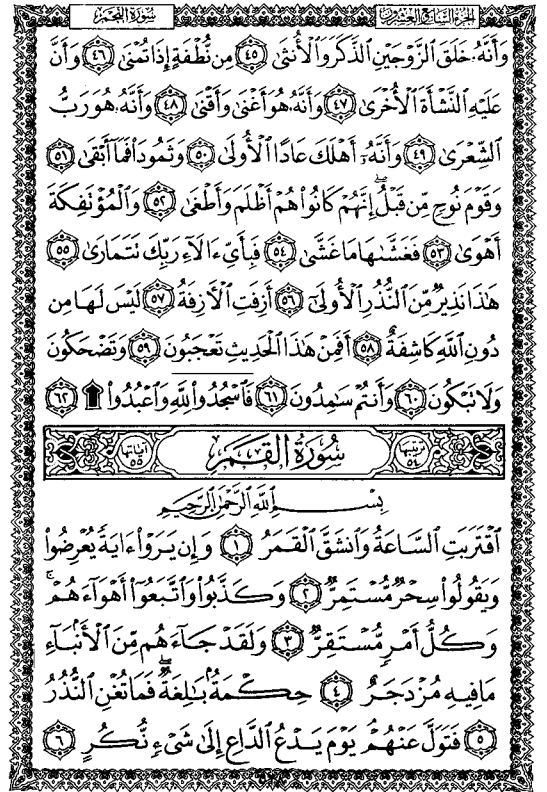 سُورَةُ النَّجْمِ الجزء السابع والعشرون
وَأَنَّهُۥ خَلَقَ ٱلزَّوْجَيْنِ ٱلذَّكَرَ وَٱلْأُنثَىٰ ٤٥ مِن نُّطْفَةٍ إِذَا تُمْنَىٰ ٤٦ وَأَنَّ
عَلَيْهِ ٱلنَّشْأَةَ ٱلْأُخْرَىٰ ٤٧ وَأَنَّهُۥ هُوَ أَغْنَىٰ وَأَقْنَىٰ ٤٨ وَأَنَّهُۥ هُوَ رَبُّ
ٱلشِّعْرَىٰ ٤٩ وَأَنَّهُۥٓ أَهْلَكَ عَادًا ٱلْأُولَىٰ ٥٠ وَثَمُودَا۟ فَمَآ أَبْقَىٰ ٥١
وَقَوْمَ نُوحٍ مِّن قَبْلُ ۖ إِنَّهُمْ كَانُوا۟ هُمْ أَظْلَمَ وَأَطْغَىٰ ٥٢ وَٱلْمُؤْتَفِكَةَ
أَهْوَىٰ ٥٣ فَغَشَّىٰهَا مَا غَشَّىٰ ٥٤ فَبِأَىِّ ءَالَآءِ رَبِّكَ تَتَمَارَىٰ ٥٥
هَٰذَا نَذِيرٌ مِّنَ ٱلنُّذُرِ ٱلْأُولَىٰٓ ٥٦ أَزِفَتِ ٱلْءَازِفَةُ ٥٧ لَيْسَ لَهَا مِن
دُونِ ٱللَّهِ كَاشِفَةٌ ٥٨ أَفَمِنْ هَٰذَا ٱلْحَدِيثِ تَعْجَبُونَ ٥٩ وَتَضْحَكُونَ
وَلَا تَبْكُونَ ٦٠ وَأَنتُمْ سَٰمِدُونَ ٦١ فَٱسْجُدُوا۟ لِلَّهِ وَٱعْبُدُوا۟ ۩ ٦٢
ترتيبها ٥٤ سُورَةُ القَمَرِ آياتها ٥٥
بِسْمِ ٱللَّهِ ٱلرَّحْمَٰنِ ٱلرَّحِيمِ
ٱقْتَرَبَتِ ٱلسَّاعَةُ وَٱنشَقَّ ٱلْقَمَرُ ١ وَإِن يَرَوْا۟ ءَايَةً يُعْرِضُوا۟
وَيَقُولُوا۟ سِحْرٌ مُّسْتَمِرٌّ ٢ وَكَذَّبُوا۟ وَٱتَّبَعُوٓا۟ أَهْوَآءَهُمْ ۚ
وَكُلُّ أَمْرٍ مُّسْتَقِرٌّ ٣ وَلَقَدْ جَآءَهُم مِّنَ ٱلْأَنۢبَآءِ
مَا فِيهِ مُزْدَجَرٌ ٤ حِكْمَةٌۢ بَٰلِغَةٌ ۖ فَمَا تُغْنِ ٱلنُّذُرُ
٥ فَتَوَلَّ عَنْهُمْ ۘ يَوْمَ يَدْعُ ٱلدَّاعِ إِلَىٰ شَىْءٍ نُّكُرٍ ٦